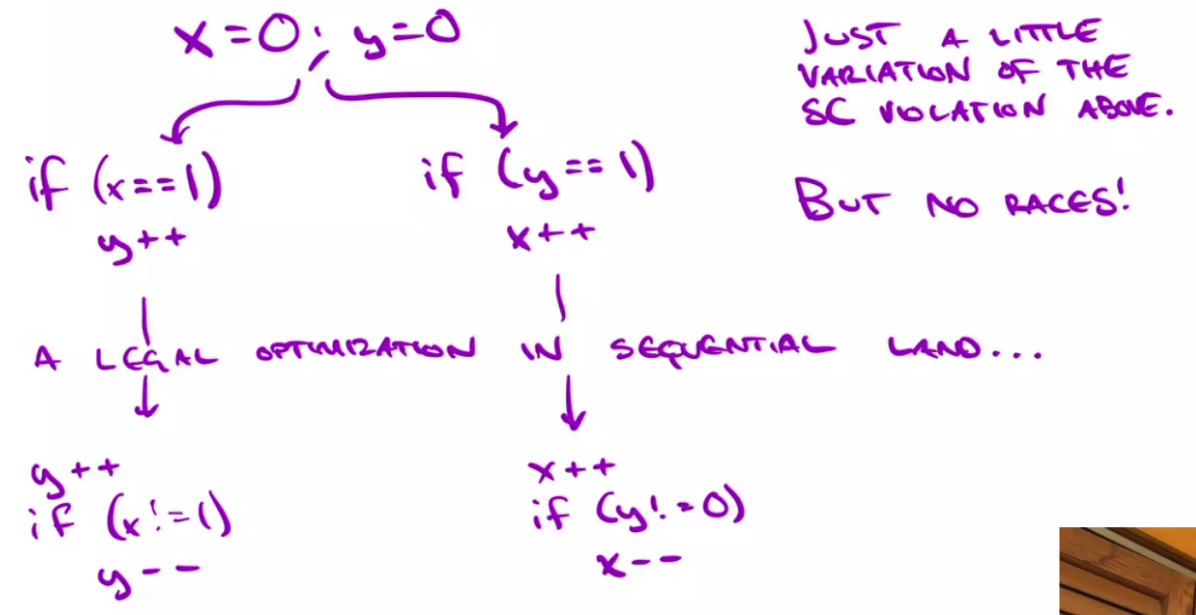 x=0; y=0
JUST A LITTLE
VARIATION OF THE
SC VIOLATION ABOVE.
if (x==1)
y++
if (y==1)
x++
BUT NO RACES!
A LEGAL OPTIMIZATION IN SEQUENTIAL LAND...
y++
if (x!=1)
y--
x++
if (y!=0)
x--